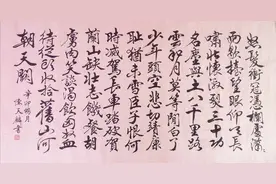 怒髮衝冠憑欄處瀟
雨歇抬望眼仰天長
嘯壯懷激烈三十功
名塵與土八千里路
雲和月莫等閒白了
少年頭空悲切靖康
耻猶未雪臣子恨何
時滅駕長車踏破賀
蘭山缺壯志飢餐胡
虜肉笑談渴飲匈奴血
待從頭收拾舊山河
朝天闕
辛卯